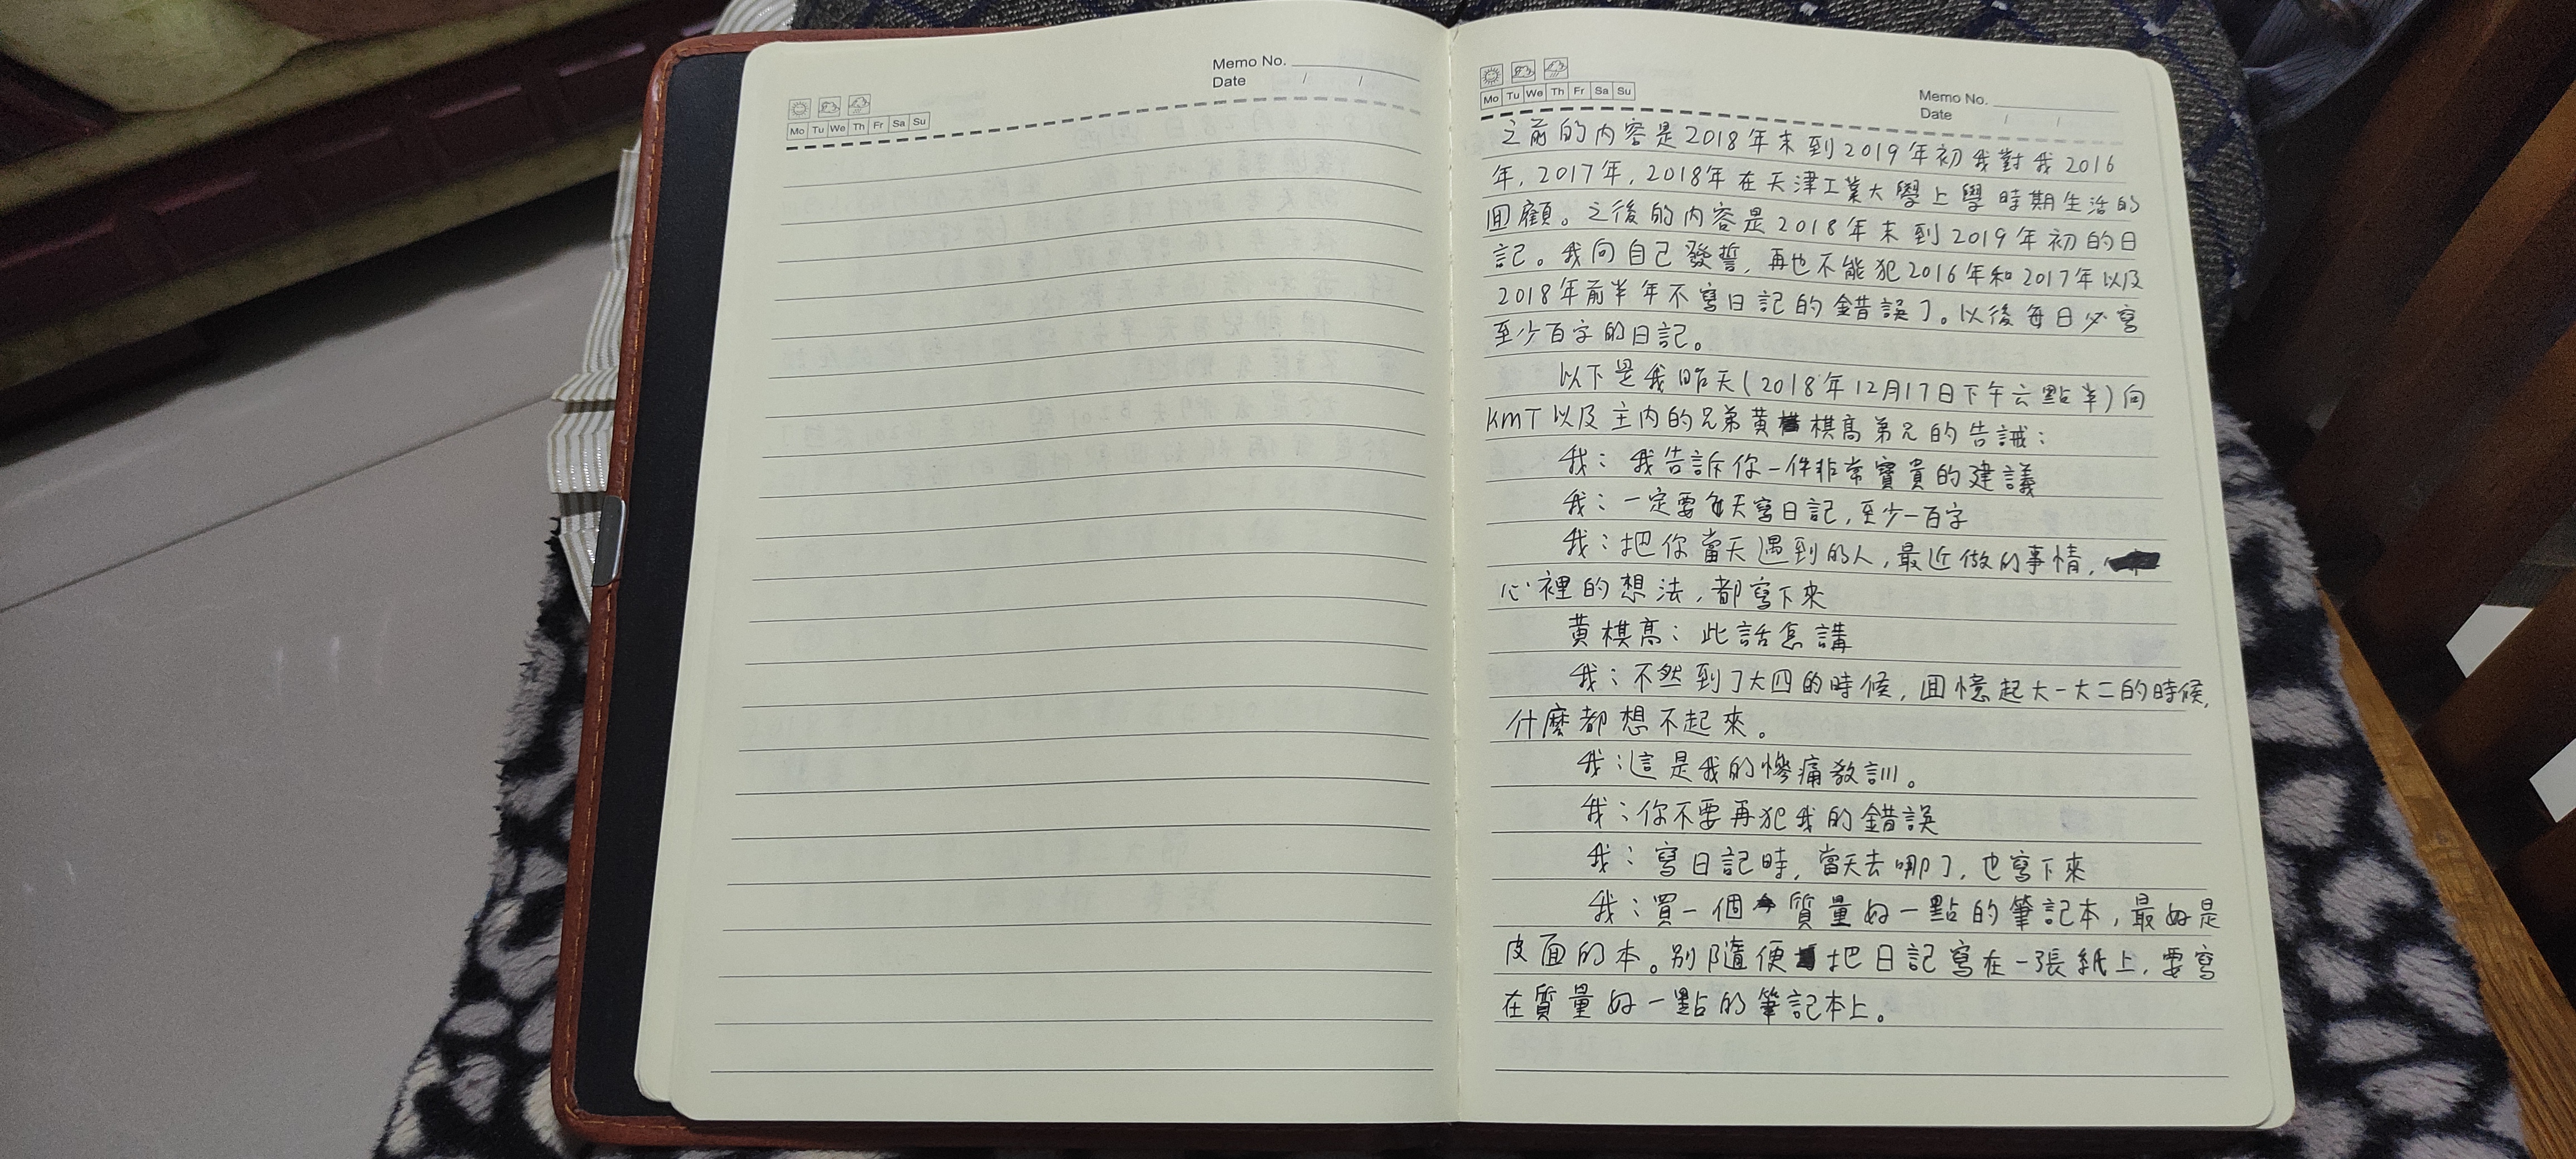 Memo No.
Date / /
Mo Tu We Th Fr Sa Su
Memo No.
Date / /
Mo Tu We Th Fr Sa Su
之前的內容是2018年末到2019年初我對我2016
年,2017年,2018年在天津工業大學上學時期生活的
回顧。之後的內容是2018年末到2019年初的日
記。我向自己發誓,再也不能犯2016年和2017年以及
2018年前半年不寫日記的錯誤了。以後每日必寫
至少百字的日記。
以下是我昨天(2018年12月17日下午六點半)向
KMT以及主內的兄弟黃棋高弟兄的告誡:
我:我告訴你一件非常寶貴的建議
我:一定要每天寫日記,至少一百字
我:把你當天遇到的人,最近做的事情,
心裡的想法,都寫下來
黃棋高:此話怎講
我:不然到了大四的時候,回憶起大一大二的時候,
什麼都想不起來。
我:這是我的慘痛教訓。
我:你不要再犯我的錯誤
我:寫日記時,當天去哪了,也寫下來
我:買一個質量好一點的筆記本,最好是
皮面的本。別隨便把日記寫在一張紙上,要寫
在質量好一點的筆記本上。